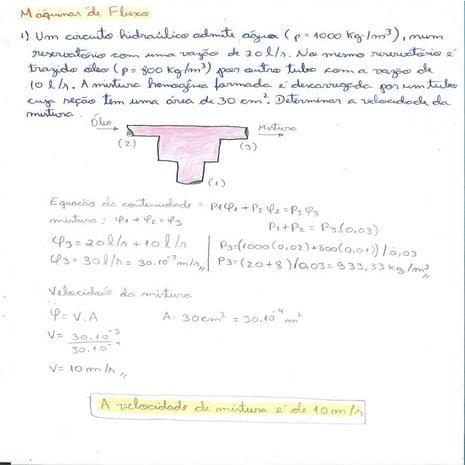 Máquinas de Fluxo
1) Um circuito hidraúlico admite água (ρ = 1000 Kg/m³), num
reservatório com uma vazão de 20 l/s. No mesmo reservatório é
trazido óleo (ρ = 800 Kg/m³) por outro tubo com a vazão de
10 l/s. A mistura homogênia formada é descarregada por um tubo
cuja seção tem uma área de 30 cm². Determinar a velocidade da
mistura.
Óleo Mistura
(2) (3)
(1)
Equacão da continuidade = ρ1φ1 + ρ2 φ2 = ρ3 φ3
mistura: φ1 + φ2 = φ3 ρ1 + ρ2 = ρ3.(0,03)
φ3 = 20 l/s + 10 l/s ρ3 = (1000(0,02) + 800(0,01)) / 0,03
φ3 = 30 l/s = 30.10⁻³ m/s,, ρ3 = (20+8) / 0,03 = 933,33 kg/m³,,
Velocidade da mistura
φ = V.A A = 30 cm² = 30.10⁻⁴ m²
V = 30.10⁻³
30.10⁻⁴
V = 10 m/s,,
A velocidade de mistura é de 10 m/s